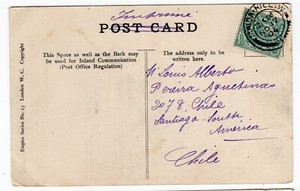 Imprimé
POST CARD
This Space as well as the Back may
be used for Inland Communication
(Post Office Regulation)
The address only to be
written here.
Empire Series No. 13 London W.C. Copyright
Mr Louis Alberto
Pereira
2078 Chile
Santiago - South
America
Chile